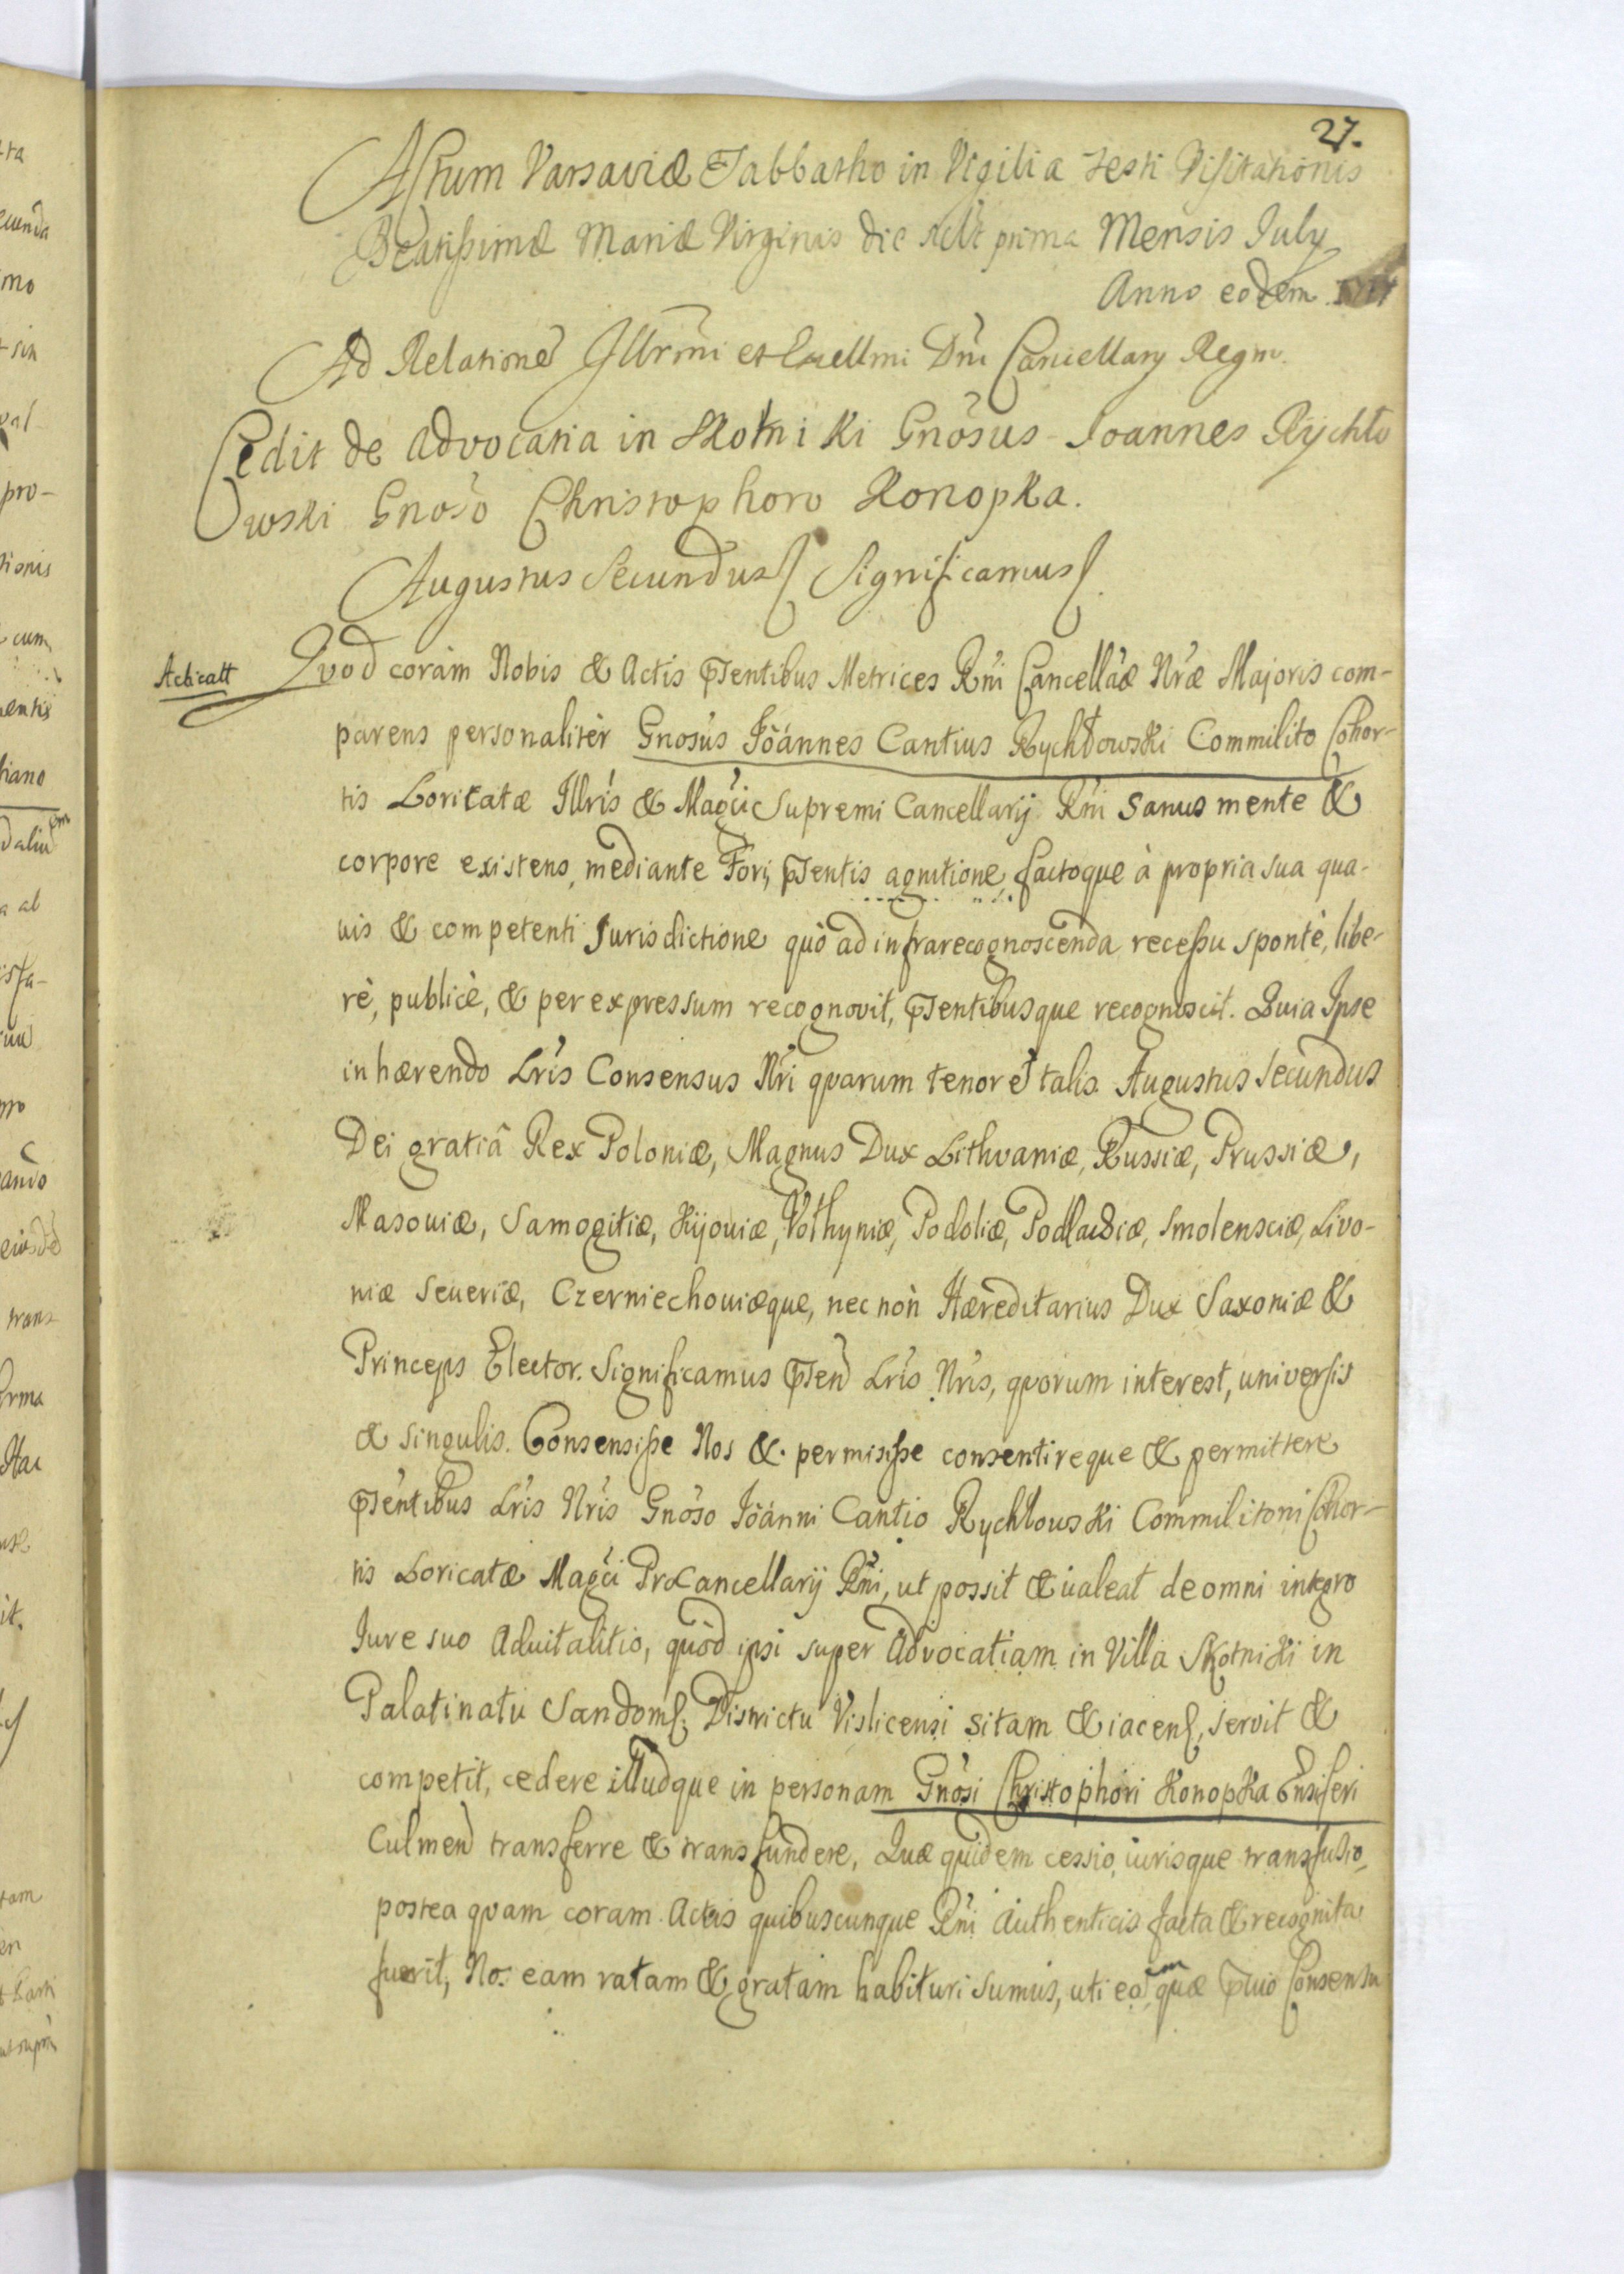 27.
Actum Varsaviæ Sabbatho in Vigilia Festi Visitationis
Beatissimæ Mariæ Virginis die prima Mensis July
Anno eodem
Ad Relatione Illrmi et Excellmi Dni Cancellary Regni.
Cedit de Advocatia in Skotniki Gnosus Joannes Rychło
wski Gnoso Christophoro Konopka.
Augustus Secundus Significamus
Acticatt
Quod coràm Nobis & Actis Psentibus Metrices Rni Cancellãæ Nræ Majoris com-
parens personalitèr Gnosus Joánnes Cantius Rychłowski Commilito Cohor-
tis Loricatæ Illris & Magci Supremi Cancellarij Rni sanus mente &
corpore existens, mediante Fori Psentis agnitione, factoque à propria sua qua-
vis & competenti Jurisdictione quò ad infrarecognoscenda recessu spontè, libe-
rè, publicè, & per expressum recognovit, Psentibusque recognoscit. Quia Ipse
inhærendo Lris Consensus Nri quarum tenor e talis. Augustus Secundus
Dei gratiâ Rex Poloniæ, Magnus Dux Lithvaniæ, Russiæ, Prussiæ,
Masoviæ, Samogitiæ, Kijoviæ, Volhyniæ, Podoliæ, Podlachiæ, Smolensciæ, Livo-
niæ Severiæ, Czerniechoviæque, nec nòn Hæreditarius Dux Saxoniæ &
Princeps Elector. Significamus Psen Lris Nris, quorum interest, universis
& singulis. Consensisse Nos & permisisse consentireque & permittere
Psentibus Lris Nris Gnoso Joánni Cantio Rychłowski Commilitoni Cohor-
tis Loricatæ Magci ProCancellarij Rni, ut possit & valeat de omni integro
Iure suo Advitalitio, quòd ipsi super Advocatiam in Villa Skotniki in
Palatinatu Sandom. Districtu Vislicensi sitam & iacen, servit &
competit, cedere illudque in personam Gnosi Christophori Konopka Ensiferi
Culmen transferre & transfundere, Quæ quidem cessio, iurisque transfusio,
postea quam coram Actis quibuscunque Rni Authenticis facta & recognita
fuerit, Nos eam ratam & gratam habituri sumus, uti eam quæ Consensu